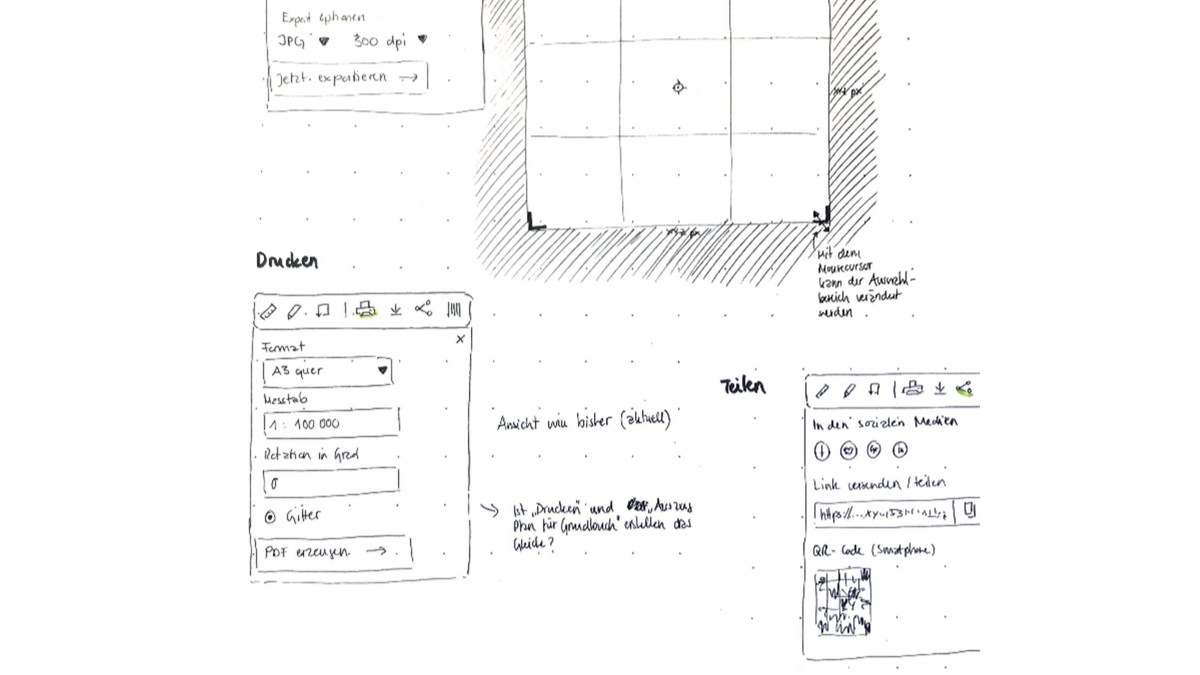 Export optionen
JPG 300 dpi
Jetzt exportieren →
px
px
Mit dem
Mousecursor
kann der Auswahl-
bereich verändert
werden
Drucken
x
Format
A3 quer
Massstab
1 : 100 000
Rotation in Grad
0
Gitter
PDF erzeugen →
Ansicht wie bisher (aktuell)
→ Ist „Drucken" und „Auszug
Plan für Grundbuch" erstellen das
Gleiche?
Teilen
In den sozialen Medien
Link versenden / teilen
https://...
QR-Code (Smartphone)